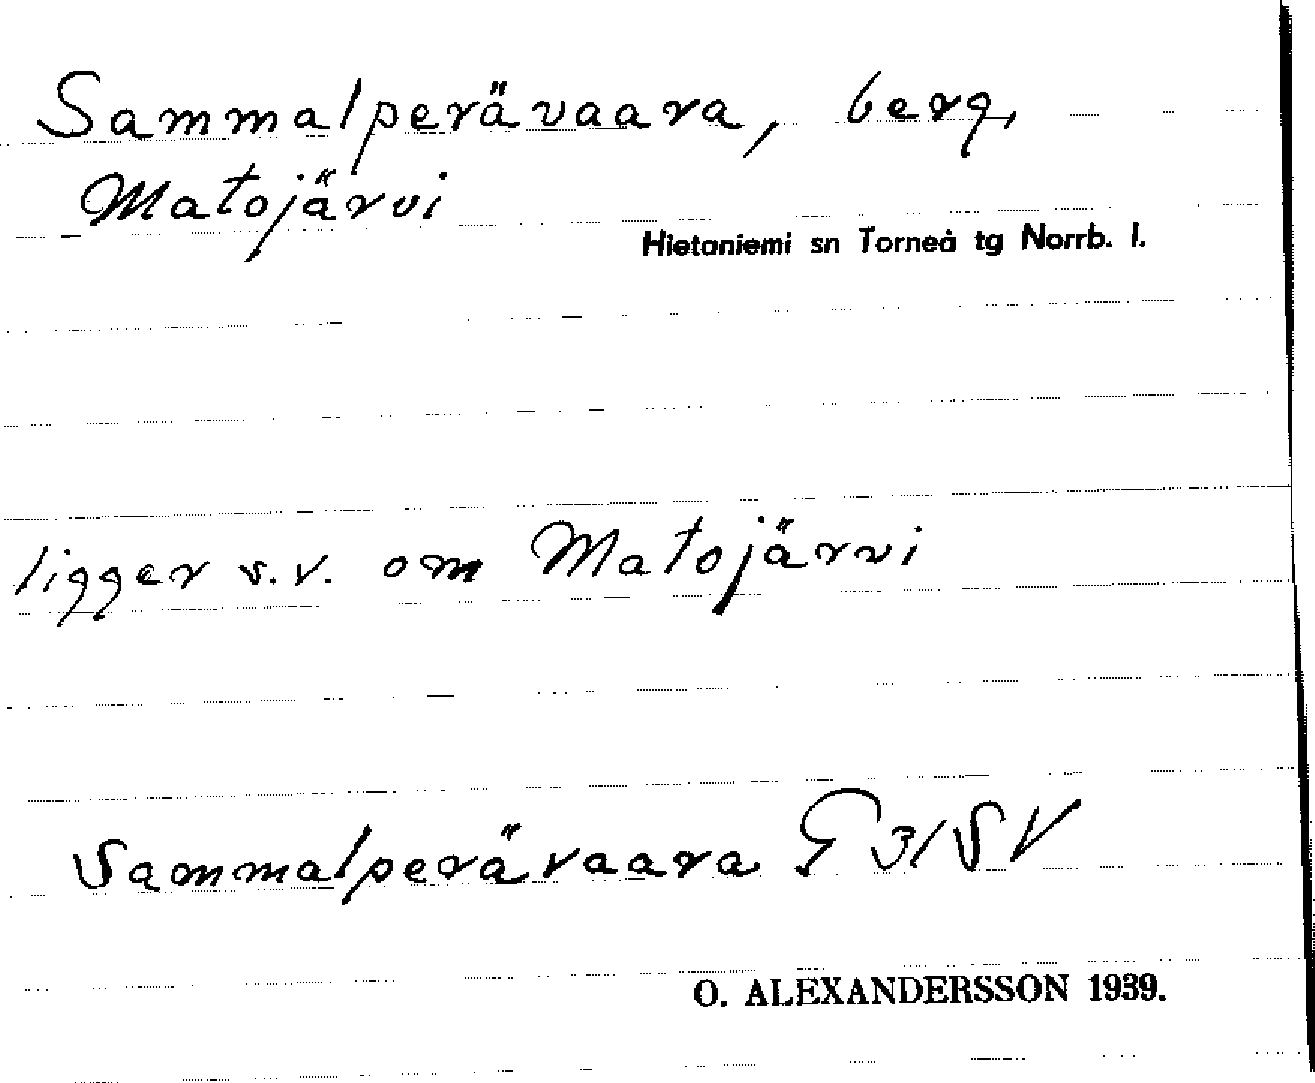 Sammalperävaara, berg,
Matojärvi
Hietaniemi sn Torneå tg Norrb. l.
ligger s.v. om Matojärvi
Sammalperävaara G 3/SV
O. ALEXANDERSSON 1939.